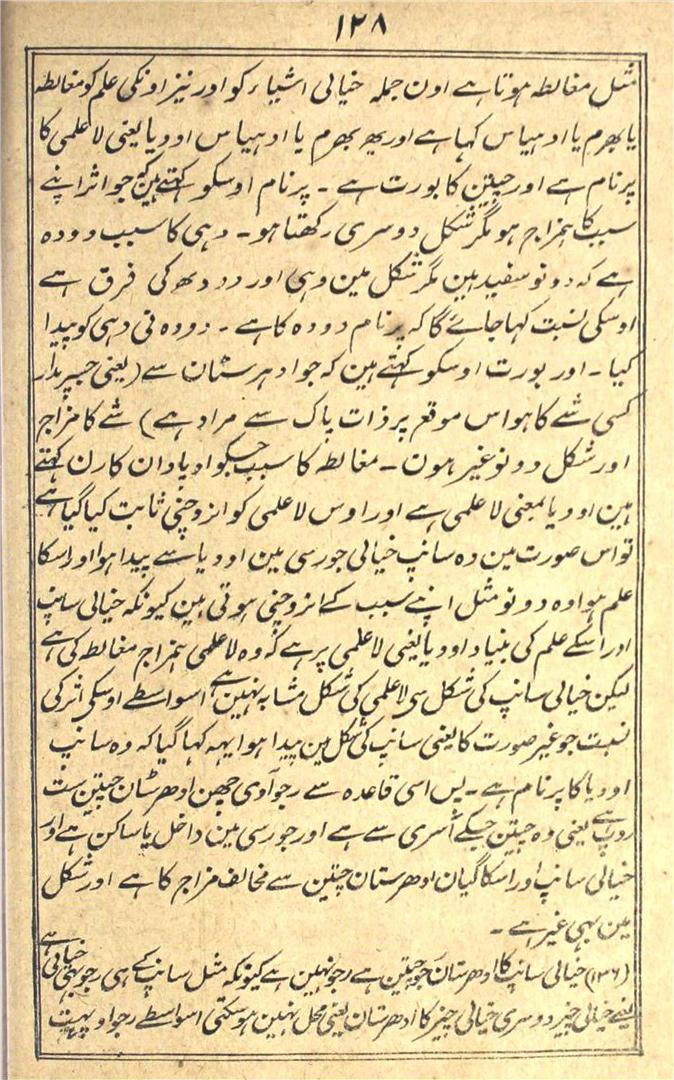 ۱۲۸
مثل مغالطہ ہوتا ہے اون جملہ خیالی اشیاء کو اور نیز اونکی علم کو مغالطہ
یا بھرم یا ادہیاس کہا ہے اور یہ بھرم یا ادہیاس اوویا یعنی لاعلمی کا
پرنام ہے اور چیتن کا بورت ہے ۔ پرنام اوسکو کہتے ہین کہ جو اثر اپنے
سبب کا ہمزاج ہو مگر شکل دوسری رکھتا ہو ۔ دہی کا سبب دودہ
ہے کہ دونو سفید ہین مگر شکل مین دہی اور دودھ کی فرق ہے
اوسکی نسبت کہا جائے گا کہ پرنام دودہ کا ہے ۔ دودہ نی دہی کو پیدا
کیا ۔ اور بورت اوسکو کہتے ہین کہ جو ادہرستان سے (یعنی جسپر مدار
کسی شے کا ہو اس موقع پر ذات پاک سے مراد ہے) شے کا مزاج
اور شکل دونو غیر ہون ۔ مغالطہ کا سبب جسکو اوپادان کارن کہتے
ہین اوویا بمعنی لاعلمی ہے اور اوس لاعلمی کو انروچنی ثابت کیا گیا ہے
تو اس صورت مین وہ سانپ خیالی جو رسی مین اوویا سے پیدا ہوا اور اسکا
علم ہوا وہ دونو مثل اپنے سبب کے انروچنی ہوتی ہین کیونکہ خیالی سانپ
اور اسکے علم کی بنیاد اوویا یعنی لاعلمی پر ہے کہ وہ لاعلمی ہمزاج مغالطہ کی ہے
لیکن خیالی سانپ کی شکل سی لاعلمی کی شکل مشابہ نہین ہے اسواسطے اوسکی اثر کی
نسبت جو غیر صورت کا یعنی سانپ کی شکل مین پیدا ہوا یہہ کہا گیا کہ وہ سانپ
اوویا کا پرنام ہے ۔ پس اسی قاعدہ سے رجو آوی چھن ادھرشٹان چیتن ست
روپ ہے یعنی وہ چیتن جسکے آسری سے ہے اور جو رسی مین داخل یا ساکن ہے اور
خیالی سانپ اور اسکا گیان ادھرستان چیتن سے مخالف مزاج کا ہے اور شکل
مین بہی غیر ہے ۔
(۱۳۶) خیالی سانپ کا ادھرستان جو چیتن ہے رجو نہین ہے کیونکہ مثل سانپ کے ہی رجو بہی خیالی ہے
یعنے خیالی چیز دوسری خیالی چیز کا ادھرستان یعنی محل نہین ہوسکتی اسواسطے رجو اوپہت